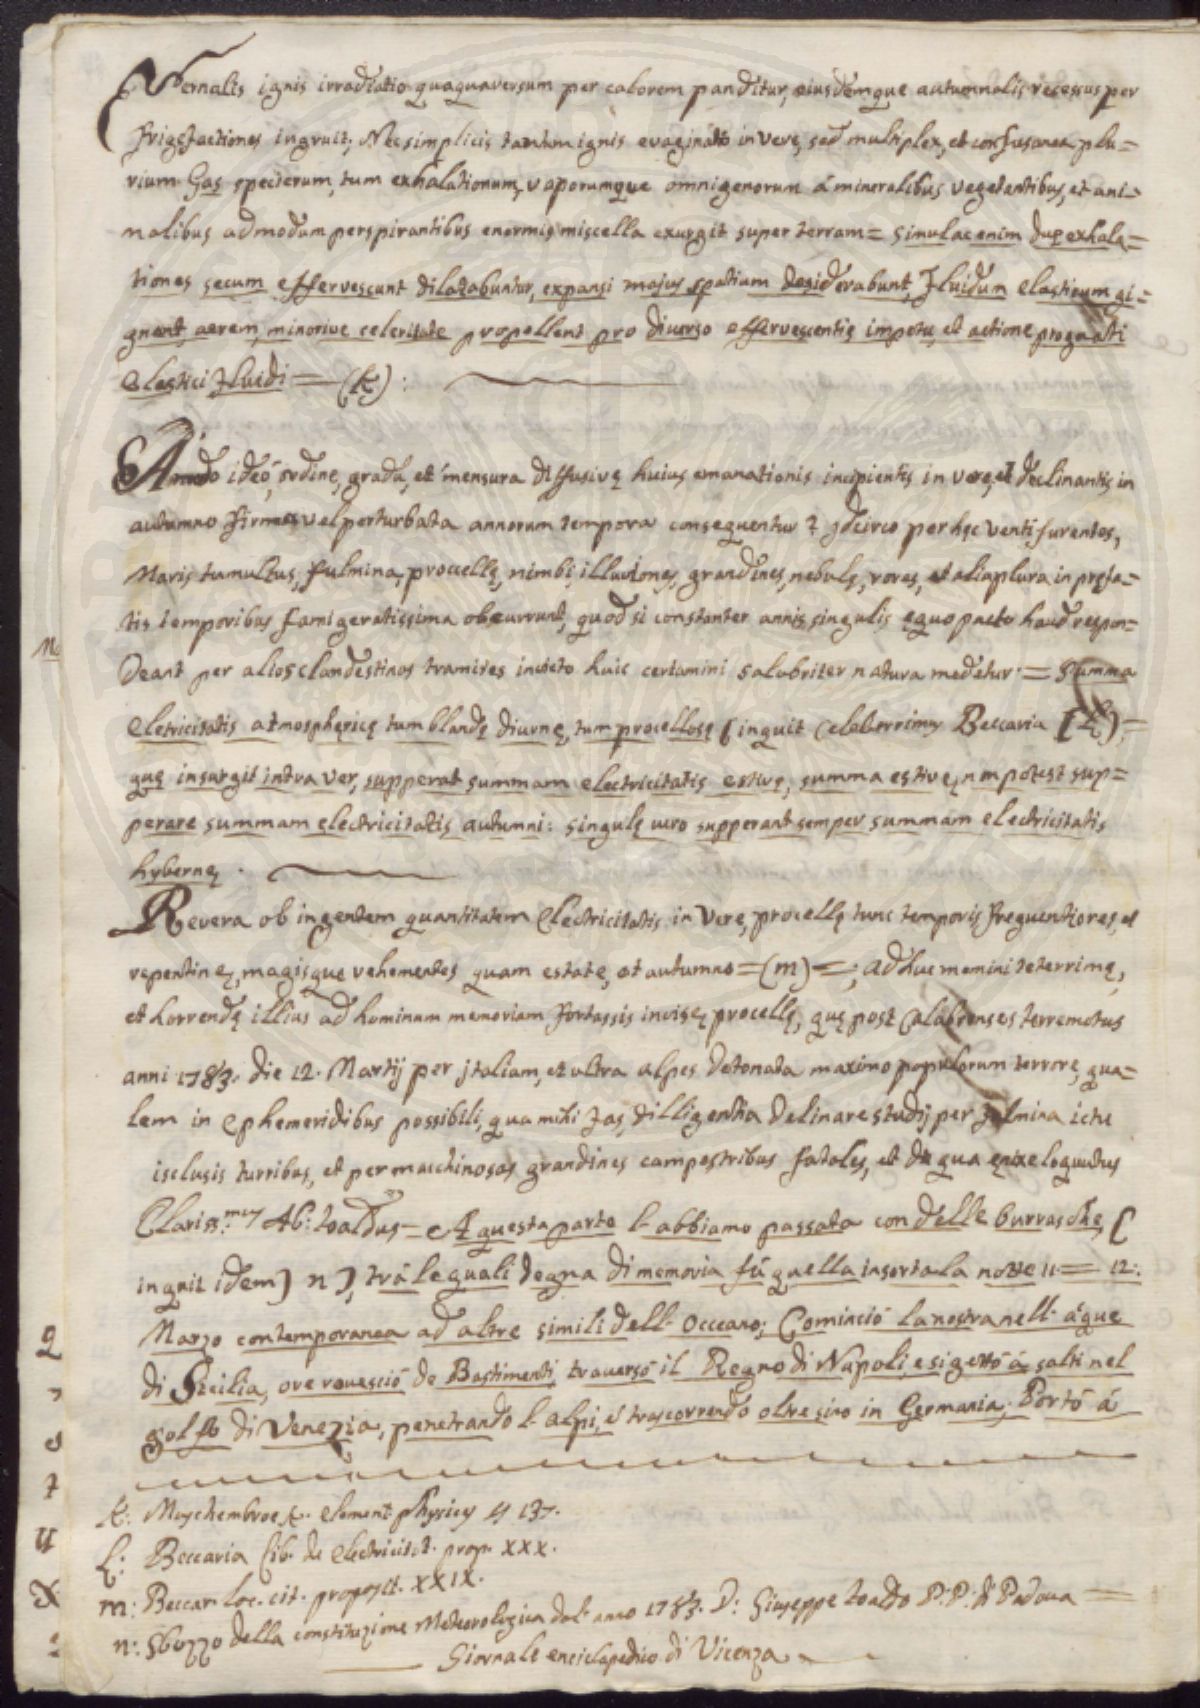 Vernalis ignis irradiatio quaquaversum per calorem panditur, eiusdemque autumnalis recessus per
frigefactiones ingruit; Nec simplicis tantum ignis evaginatio in vere, sed multiplex, et confusanea plu=
rium Gas specierum, tum exhalationum, vaporumque omnigenorum á mineralibus vegetantibus, et ani=
malibus admodum perspirantibus enormis miscella exurgit super terram= simulac enim duę exhalą=
tiones secum effervescunt dilatabuntur, expansi majus spatium desiderabunt, fluidum elasticum gi=
gnent, aerem, minorive celeritate propellent pro diverso effervescentię impetu, et actione prognati
elastici fluidi = (k):
A modo ideó, ordine, gradu, et mensura diffusivę huius emanationis incipientis in vere, et declinantis in
autumno firma vel perturbata annorum tempora consequentur? jdcirco per hęc venti furentes,
Maris tumultus, fulmina, procellę, nimbi, illuviones, grandines, nebulę, rores, et alia plura in pręfa=
tis temporibus famigeratissima obcurrunt, quod si constanter annis singulis ęquo pacto haud respon=
deant per alios clandestinos tramites invicto huic certamini salubriter natura medetur = Summa
eletricitatis atmosphęricę tum blandę diurnę, tum procellosę (inquit Celeberrimus Beccaria (L),=
quę insurgit intra ver, supperat summam electricitatis estivę, summa estivę, n mpotest sup=
perare summam electricitatis autumni: singulę vero supperant semper summam electricitatis
hybernę.
Revera ob ingentem quantitatem electricitatis in vere, procellę tunc temporis frequentiores, et
repentinę, magisque vehementes quam estate, et autumno =(m)=; adhuc memini teterrimę,
et horrendę illius ad hominum memoriam fortassis invisę procellę, quę post Calabrenses terremotus
anni 1783. die 12. Martij per jtaliam, et ultra alpes detonata maximo populorum terrore, qua=
lem in ephemeridibus possibili, qua mihi fas, dilligentia delinare studij per fulmina ictu
isclusis turribus, et per macchinosas grandines campestribus fatales, et de qua loquutus
Clariss.mus Ab: toaldus = A questa parte l'abbiamo passata con delle burrasche, (
inquit idem) n), trá le quali degna di memoria fú quella insorta la notte 11 = 12:
Marzo contemporanea ad altre simili dell' Occeano; Cominció la nostra nell' ácque
di Sicilia, ove rovesció de Bastimenti, traversó il Regno di Napoli, e si gettó á salti nel
golfo di Venezia, penetrando l'alpi, e trascorrendo oltre sino in Germania; Portó á
k: Muschembroek. element physices § 137.
L: Beccaria Lib. de electricitat. prop. XXX.
m: Beccar. loc. cit. proposit. XXIX.
n: Sbozzo della constituzione Meteorologica dal' anno 1783. D: Giuseppe toaldo P: P: di Padova =
Giornale enciclopedico di Vicenza